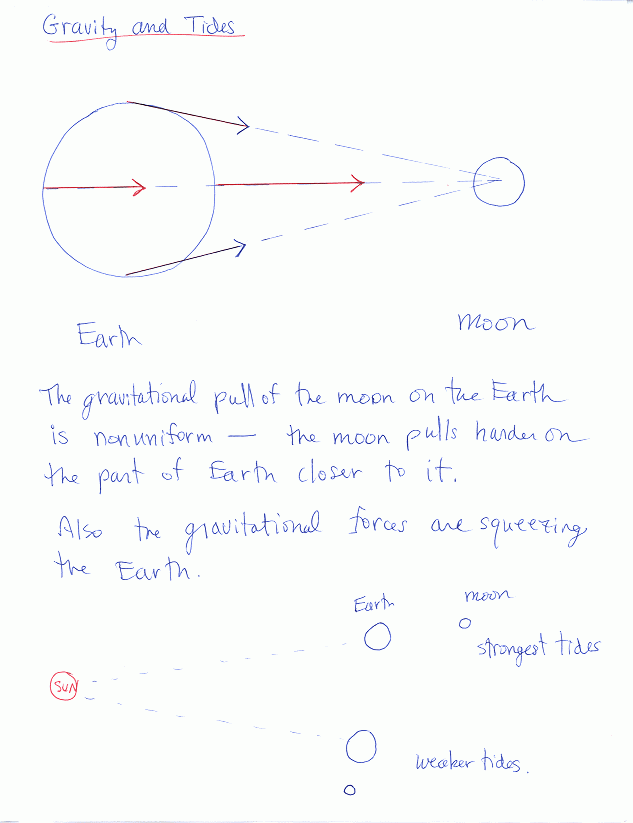 Gravity and Tides
Earth
moon
The gravitational pull of the moon on the Earth
is nonuniform — the moon pulls harder on
the part of Earth closer to it.
Also the gravitational forces are squeezing
the Earth.
Earth
moon
strongest tides
SUN
weaker tides.